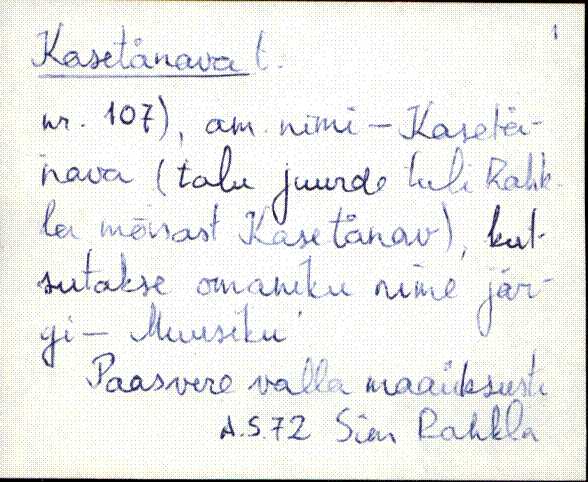 1
Kasetänava t.
nr. 107), am. nimi - Kasetä-
nava (talu juurde tuli Rahk-
la mõisast Kasetänav), kut-
sutakse omaniku nime jär-
gi - Muusiku
Paasvere valla maaüksusti
A.S.72 Sim Rahkla